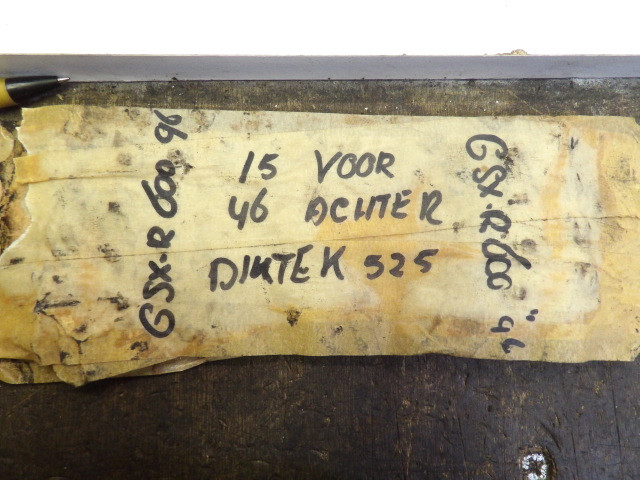 GSX-R 600 96
15 VOOR
46 ACHTER
DIKTEK 525
GSX-R 600 '96